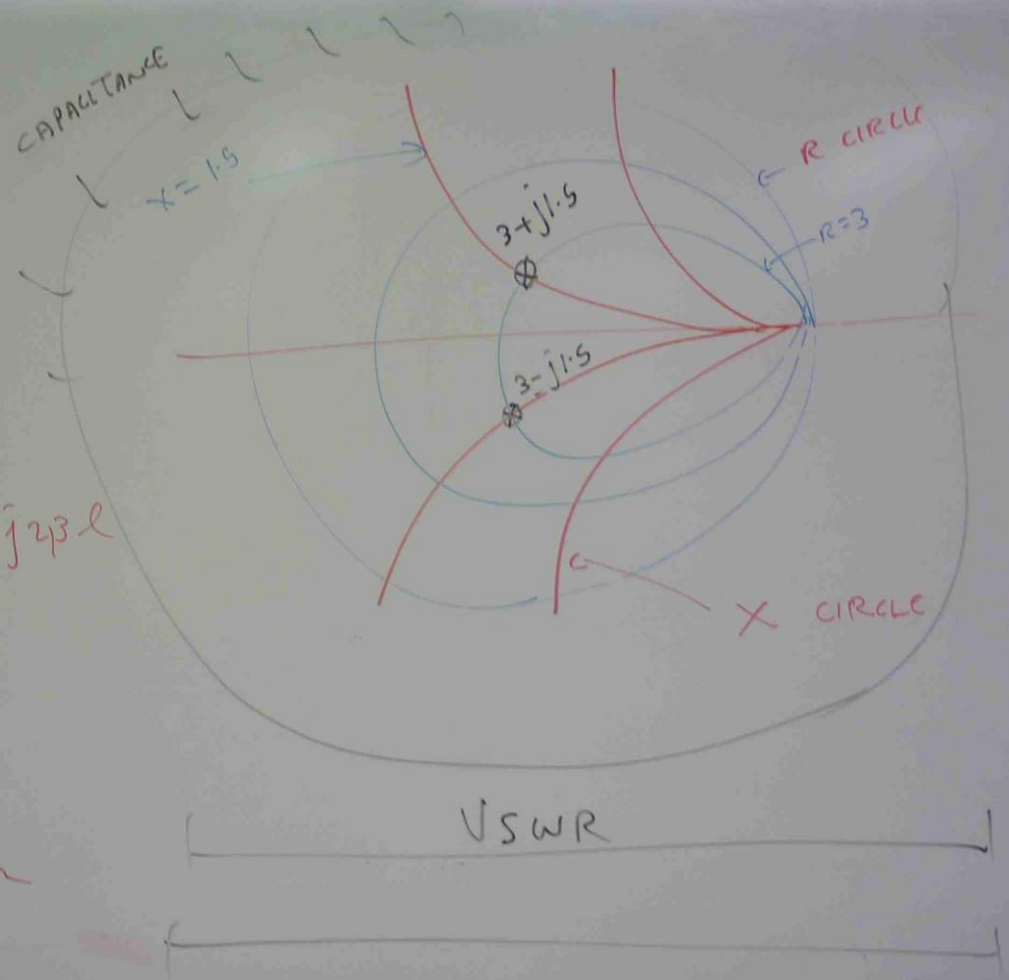 CAPACITANCE
x = 1.5
R CIRCLE
3+j1.5
R=3
3-j1.5
j2βl
X CIRCLE
VSWR